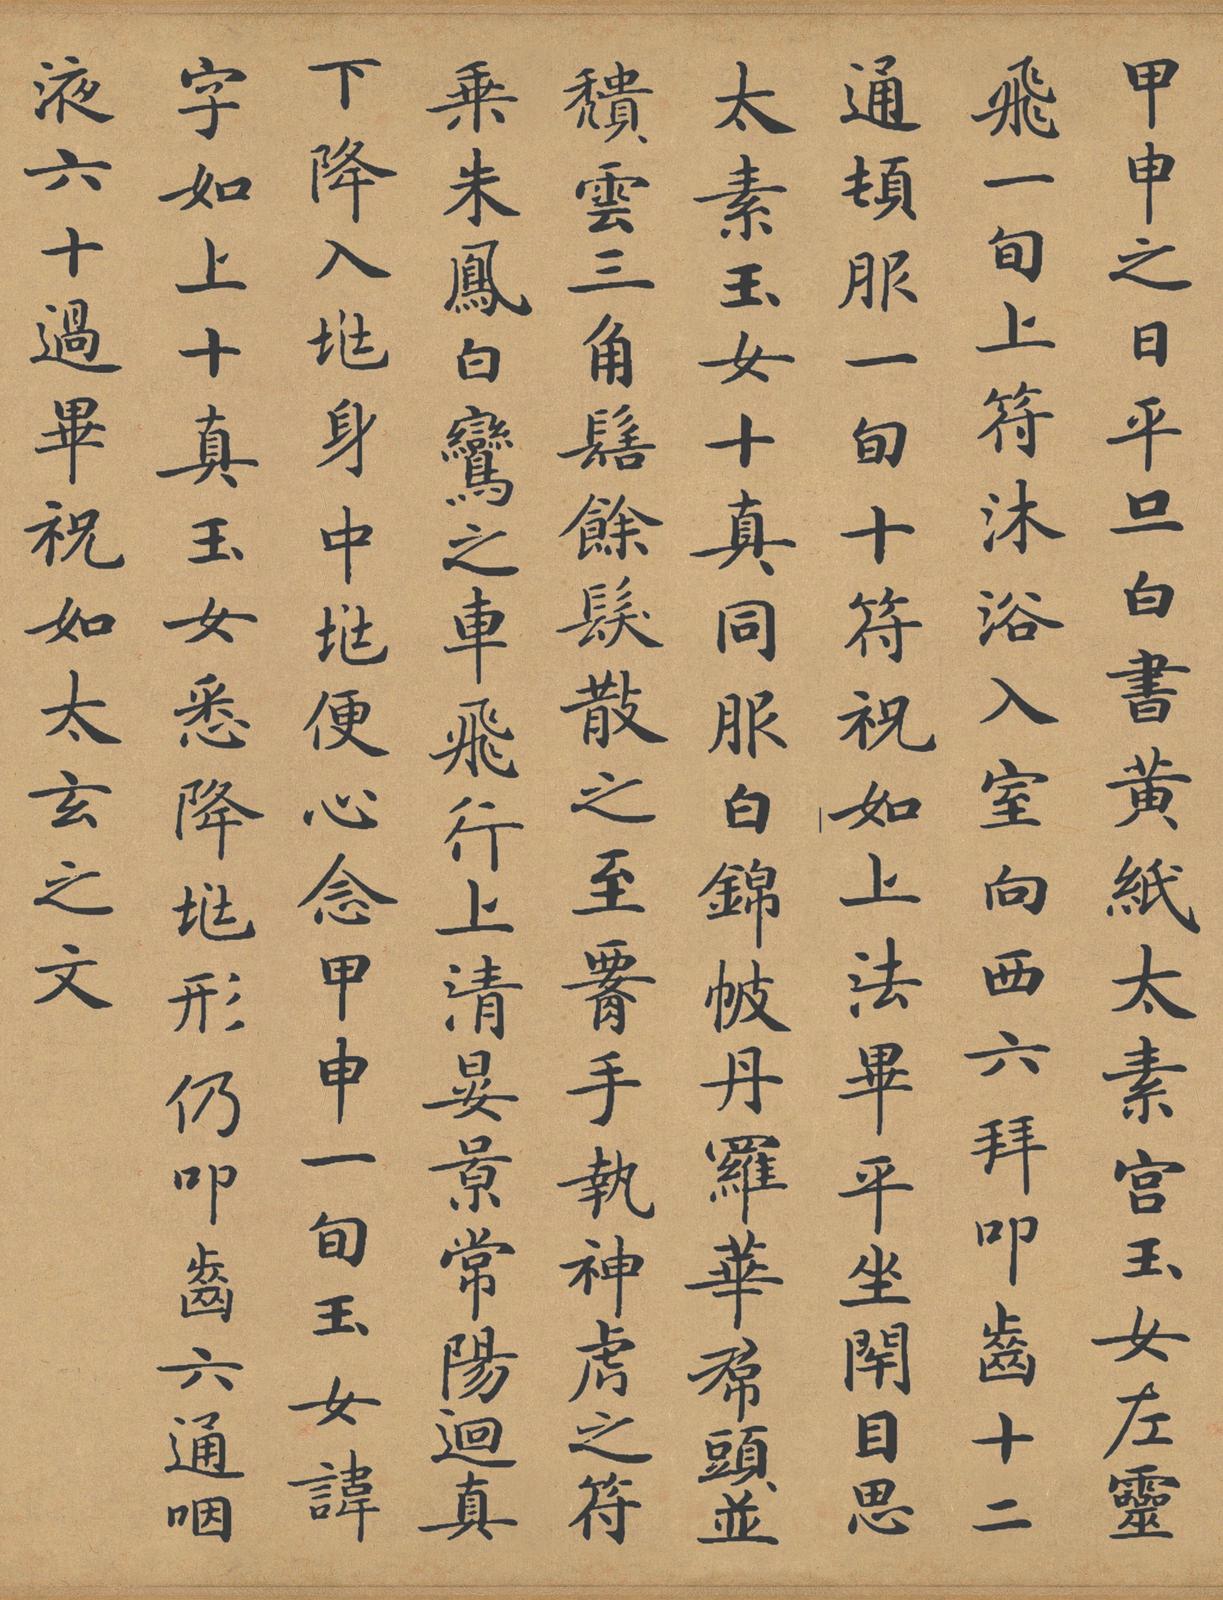 甲申之日平旦白書黃紙太素宮玉女左靈
飛一旬上符沐浴入室向西六拜叩齒十二
通頓服一旬十符祝如上法畢平坐閇目思
太素玉女十真同服白錦帔丹羅華帬頭並
穨雲三角髻餘髮散之至署手執神虎之符
乗朱鳳白鸞之車飛行上清晏景常陽迴真
下降入兆身中兆便心念甲申一旬玉女諱
字如上十真玉女悉降兆形仍叩齒六通咽
液六十過畢祝如太玄之文